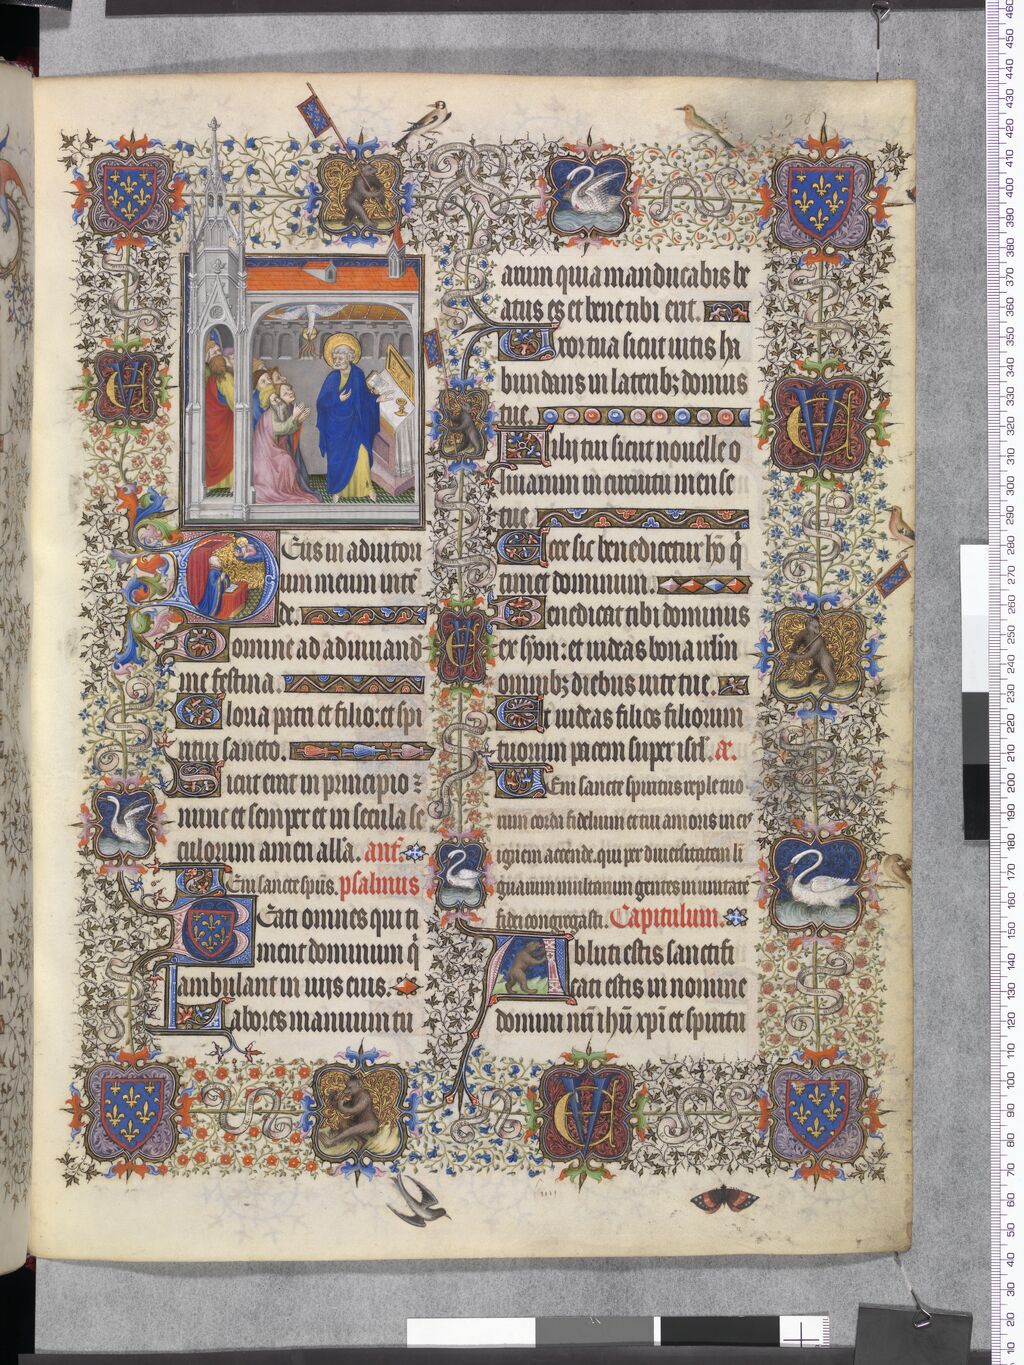 Deus in adiutori
um meum inte
de.
Domine ad adiuuand
me festina.
Gloria patri et filio: et spi
ritui sancto.
Sicut erat in principio z
nunc et semper et in secula se
culorum amen all'a. ant'.
Ueni sancte sp̃us. psalmus
Beati omnes qui ti
ment dominum q̃
ambulant in uijs eius.
Labores manuum tu
arum quia manducabis be
atus es et bene tibi erit.
Uxor tua sicut uitis ha
bundans in laterib; domus
tue.
Filij tui sicut nouelle o
liuarum in circuitu mense
tue.
Ecce sic benedicetur hõ q̃
timet dominum.
Benedicat tibi dominus
ex syon: et uideas bona ierl'm
omnib; diebus uite tue.
Et uideas filios filiorum
tuorum pacem super isrl'. a.
Ueni sancte spiritus reple tuo
rum corda fidelium et tui amoris in eis
ignem accende. qui per diuersitatem li
guarum multarum gentes in unitate
fidei congregasti. Capitulum.
Abluti estis sanctifi
cati estis in nomine
domini nr̃i ihũ xp̃i et spiritu